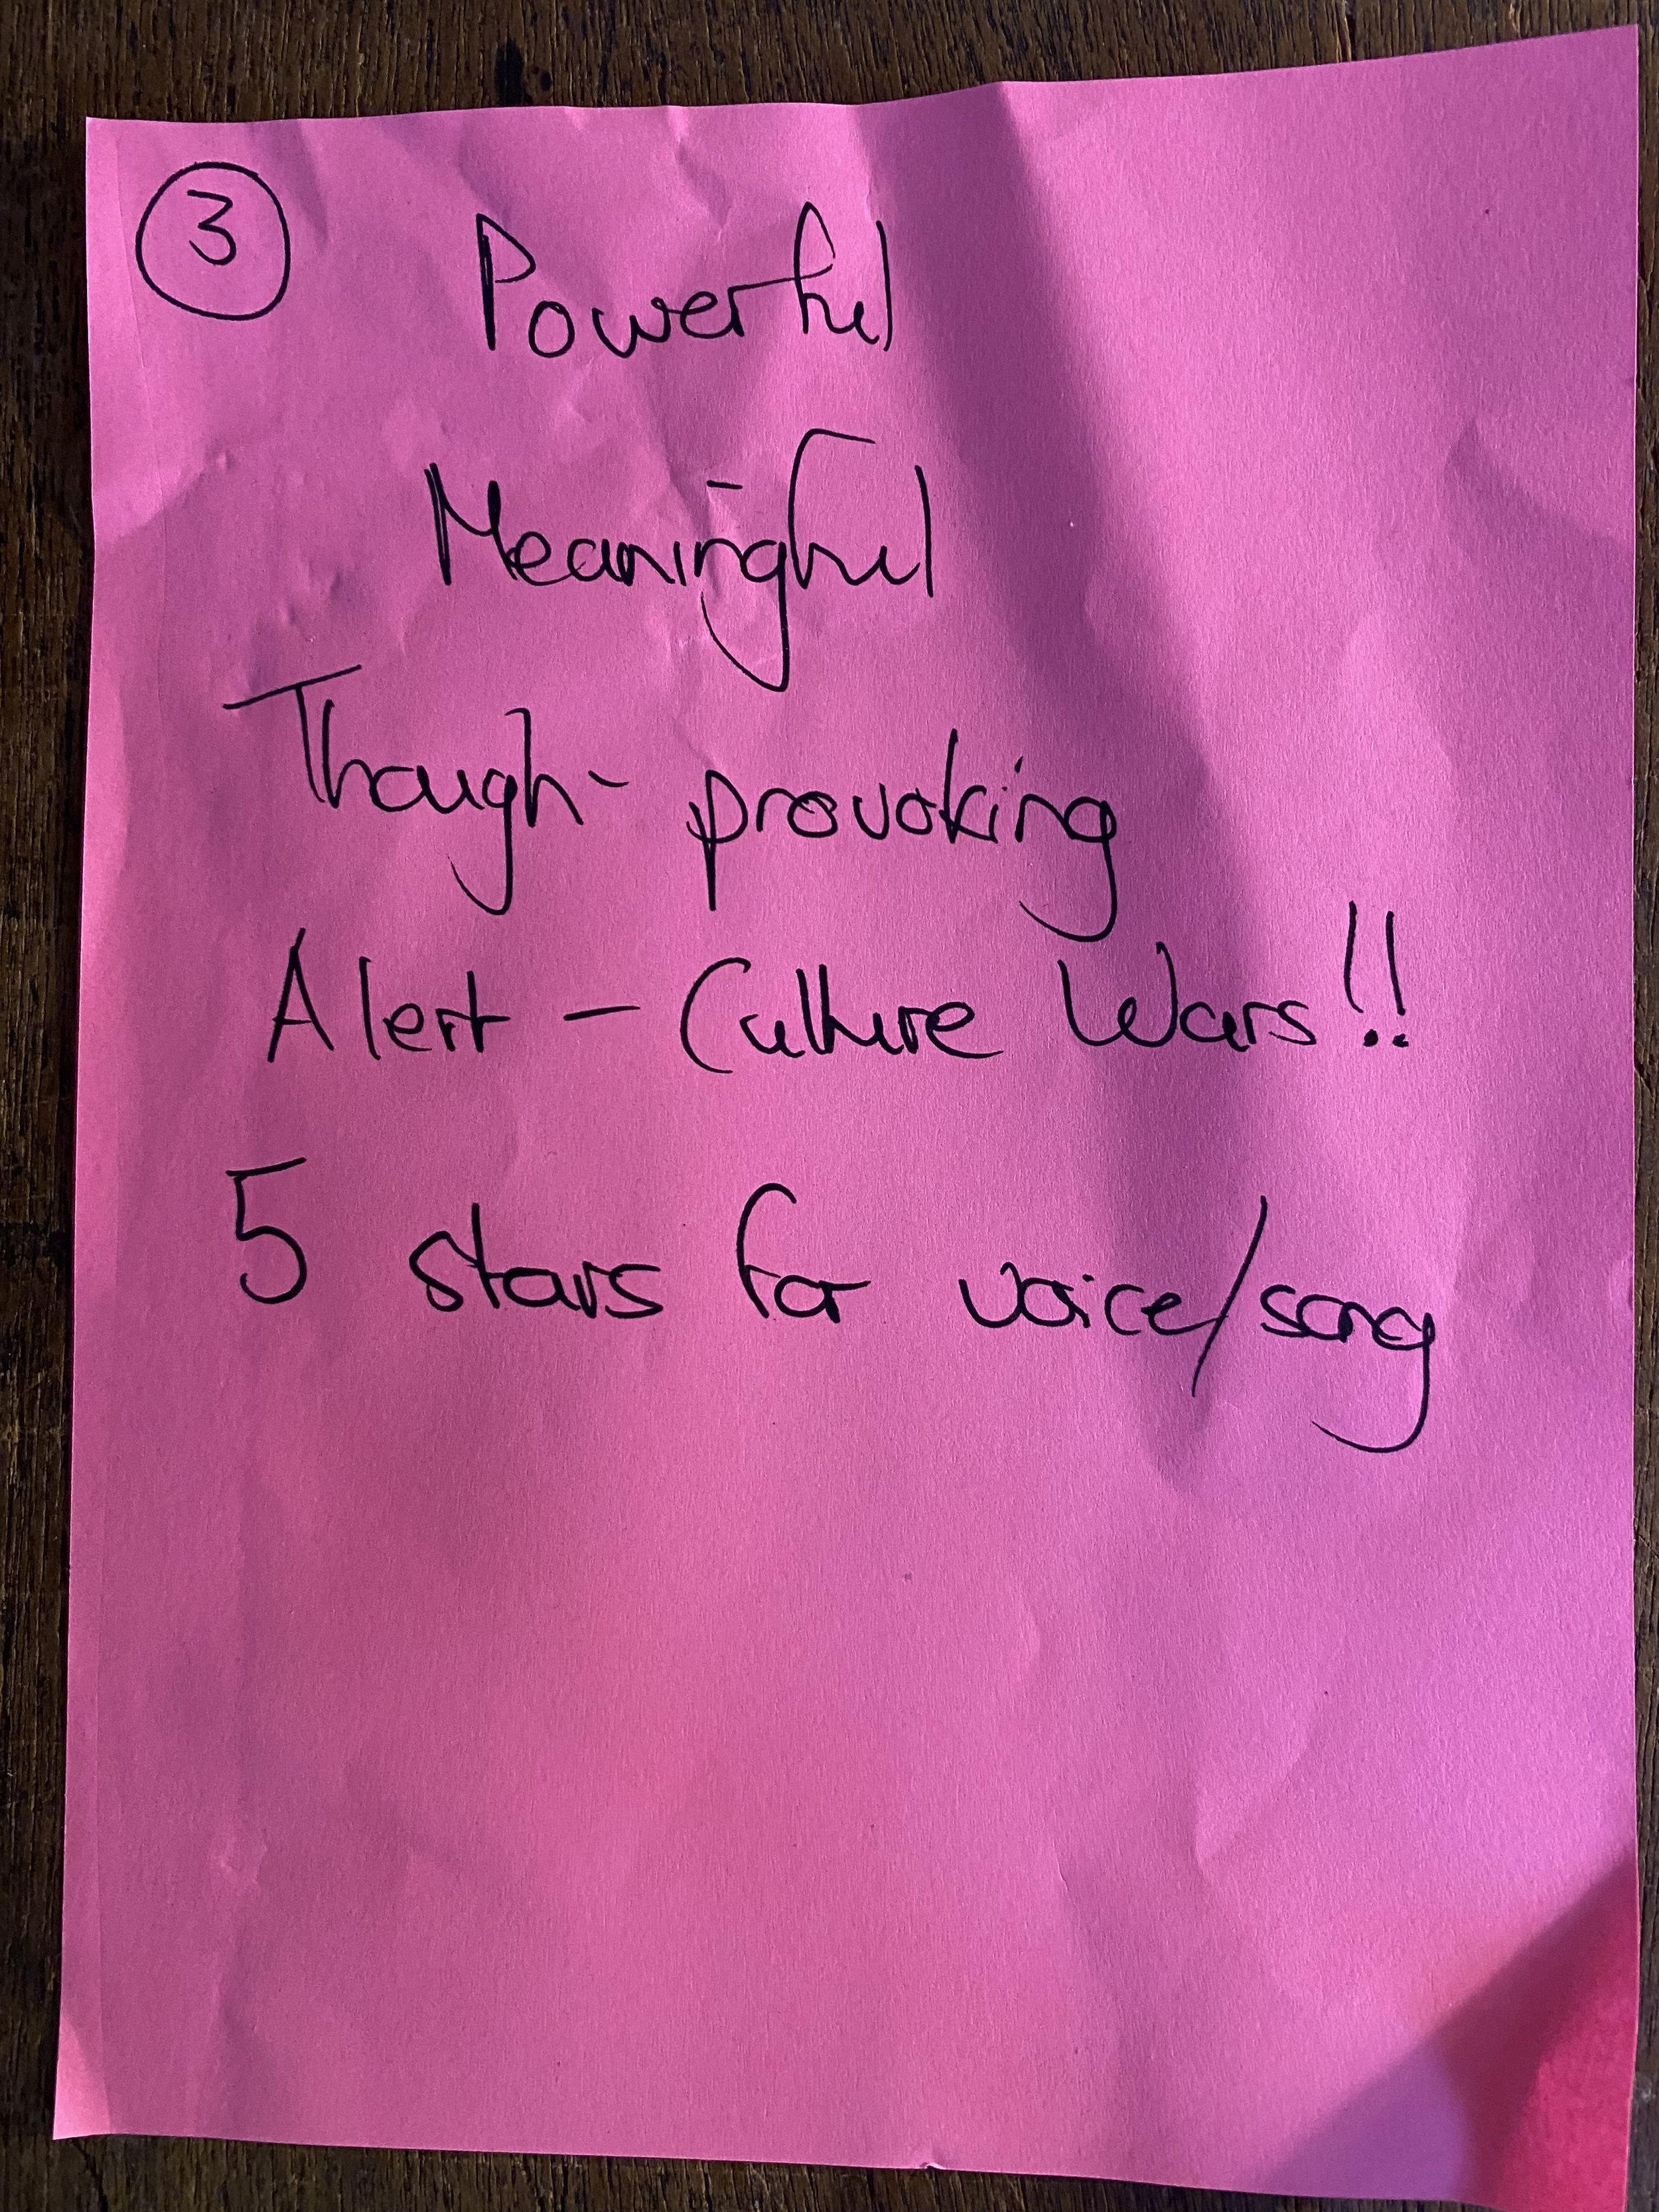 3
Powerful
Meaningful
Though- provoking
Alert - Culture Wars!!
5 stars for voice/song